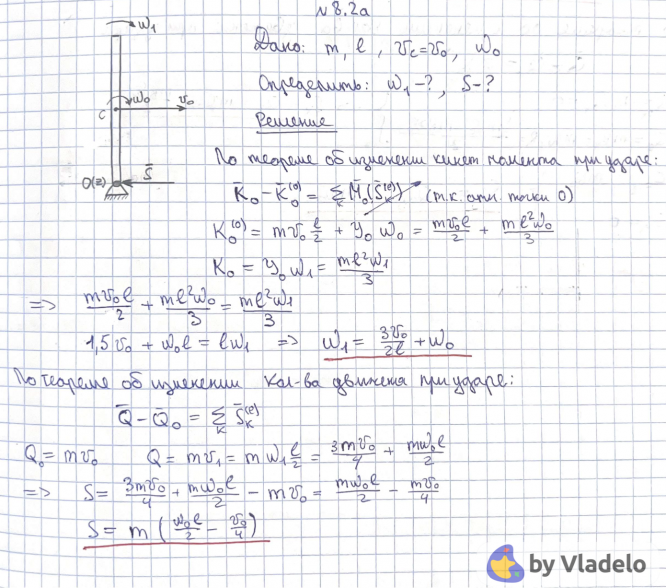 N 8.2a
Дано: m, l, v_c = v_0, ω_0
Определить: ω_1 - ?, S - ?
Решение
ω_1
ω_0
C
v_0
O(z)
S̄
По теореме об изменении кинет момента при ударе:
K̄_0 - K̄_0^(0) = Σ_K M̄_0(S̄_K^(e)) (т.к. отн. точки O)
K_0^(0) = mv_0 l/2 + J_0 ω_0 = mv_0l/2 + ml²ω_0/3
K_0 = J_0 ω_1 = ml²ω_1/3
=> mv_0l/2 + ml²ω_0/3 = ml²ω_1/3
1,5v_0 + ω_0l = lω_1 => ω_1 = 3v_0/2l + ω_0
По теореме об изменении кол-ва движения при ударе:
Q̄ - Q̄_0 = Σ_K S̄_K^(e)
Q_0 = mv_0 Q = mv_1 = mω_1 l/2 = 3mv_0/4 + mω_0l/2
=> S = 3mv_0/4 + mω_0l/2 - mv_0 = mω_0l/2 - mv_0/4
S = m (ω_0l/2 - v_0/4)
by Vladelo